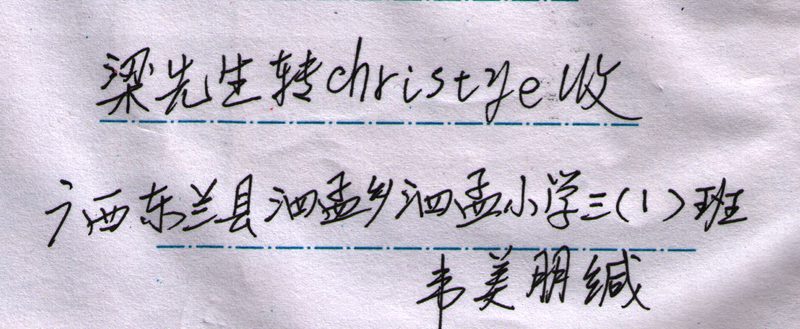 梁先生转christye收
广西东兰县泗孟乡泗孟小学三(1)班
韦美朋缄